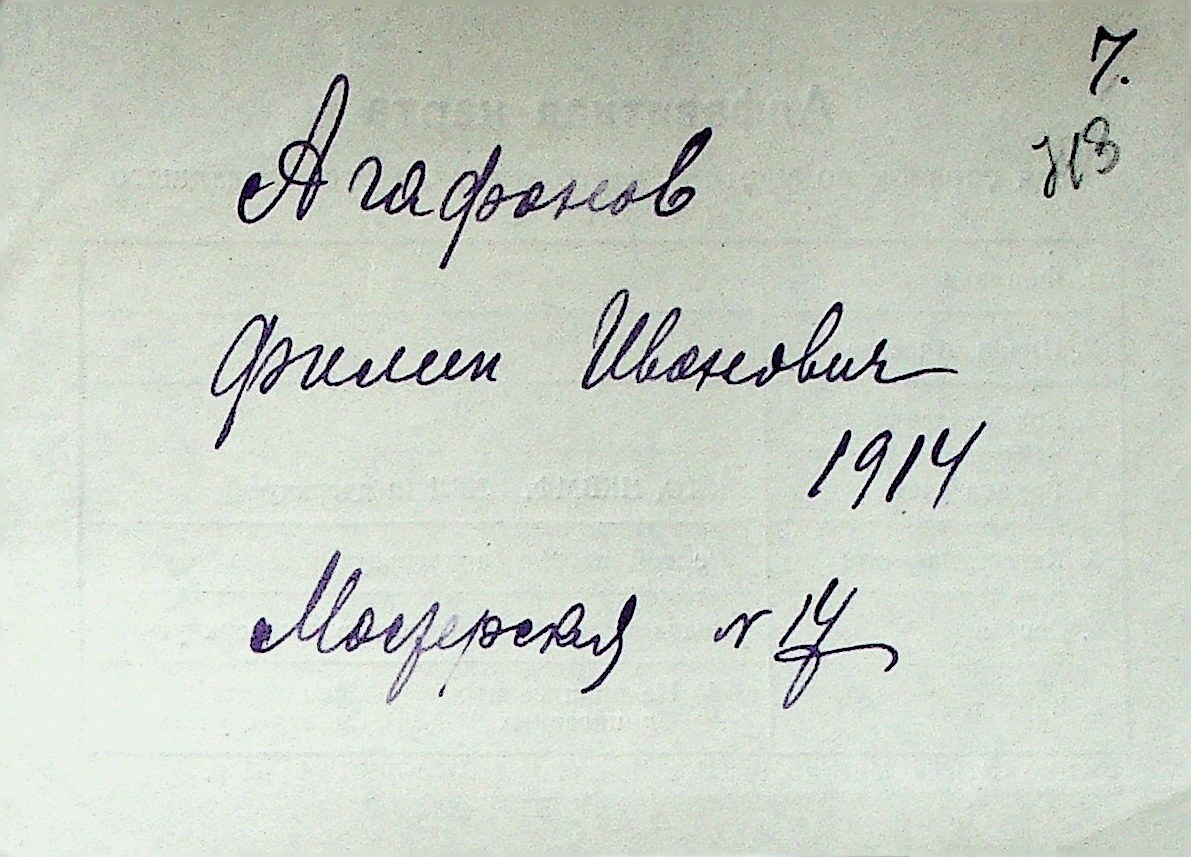 7.
Агафонов
Филип Иванович
1914
Мастерская № 14